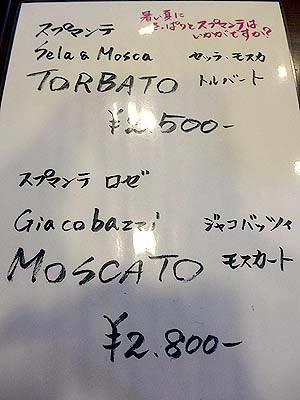 スプマンテ
暑い夏に
さっぱりとスプマンテは
いかがですか?
Sela & Mosca セッラ・モスカ
TORBATO トルバート
¥2,500-
スプマンテ ロゼ
Giacobazzi ジャコバッツィ
MOSCATO モスカート
¥2.800-